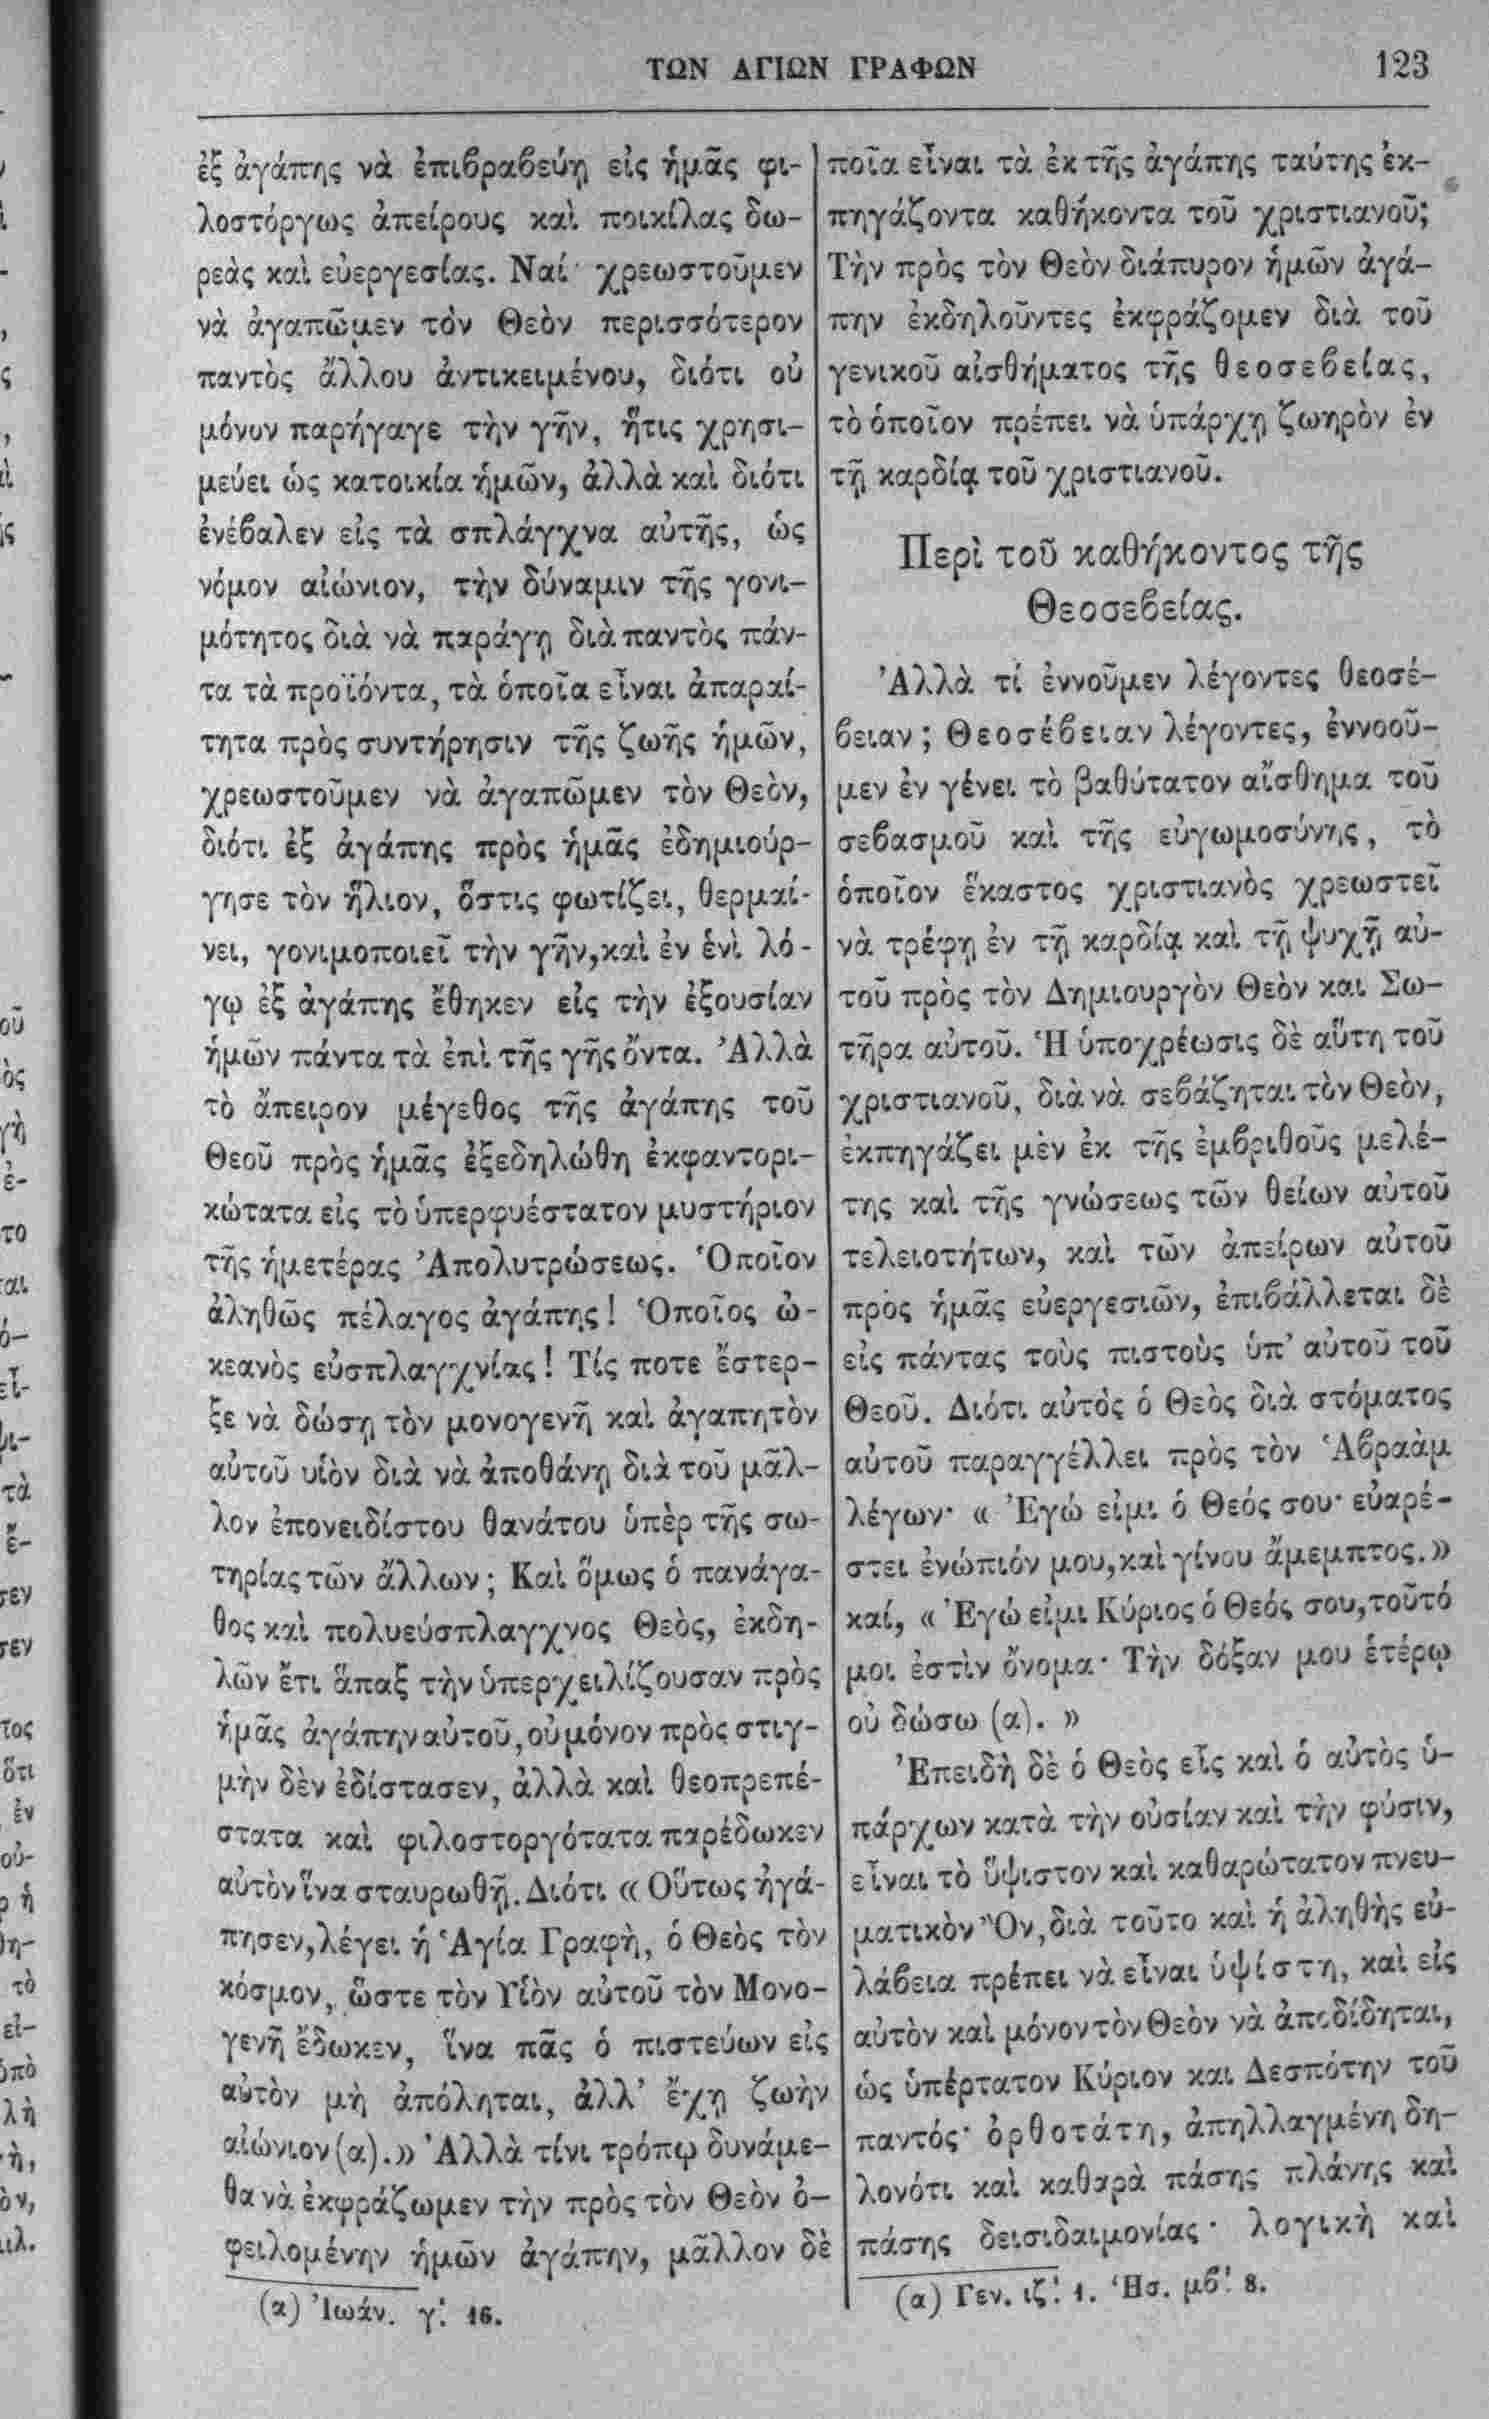 ΤΩΝ ΑΓΙΩΝ ΓΡΑΦΩΝ
123
ἐξ ἀγάπης νὰ ἐπιβραβεύῃ εἰς ἡμᾶς φι-
λοστόργως ἀπείρους καὶ ποικίλας δω-
ρεὰς καὶ εὐεργεσίας. Ναί· χρεωστοῦμεν
νὰ ἀγαπῶμεν τὸν Θεὸν περισσότερον
παντὸς ἄλλου ἀντικειμένου, διότι οὐ
μόνον παρήγαγε τὴν γῆν, ἥτις χρησι-
μεύει ὡς κατοικία ἡμῶν, ἀλλὰ καὶ διότι
ἐνέβαλεν εἰς τὰ σπλάγχνα αὐτῆς, ὡς
νόμον αἰώνιον, τὴν δύναμιν τῆς γονι-
μότητος διὰ νὰ παράγῃ διὰ παντὸς πάν-
τα τὰ προϊόντα, τὰ ὁποῖα εἶναι ἀπαραί-
τητα πρὸς συντήρησιν τῆς ζωῆς ἡμῶν,
χρεωστοῦμεν νὰ ἀγαπῶμεν τὸν Θεὸν,
διότι ἐξ ἀγάπης πρὸς ἡμᾶς ἐδημιούρ-
γησε τὸν ἥλιον, ὅστις φωτίζει, θερμαί-
νει, γονιμοποιεῖ τὴν γῆν, καὶ ἐν ἑνὶ λό-
γῳ ἐξ ἀγάπης ἔθηκεν εἰς τὴν ἐξουσίαν
ἡμῶν πάντα τὰ ἐπὶ τῆς γῆς ὄντα. Ἀλλὰ
τὸ ἄπειρον μέγεθος τῆς ἀγάπης τοῦ
Θεοῦ πρὸς ἡμᾶς ἐξεδηλώθη ἐκφαντορι-
κώτατα εἰς τὸ ὑπερφυέστατον μυστήριον
τῆς ἡμετέρας Ἀπολυτρώσεως. Ὁποῖον
ἀληθῶς πέλαγος ἀγάπης! Ὁποῖος ὠ-
κεανὸς εὐσπλαγχνίας! Τίς ποτε ἔστερ-
ξε νὰ δώσῃ τὸν μονογενῆ καὶ ἀγαπητὸν
αὑτοῦ υἱὸν διὰ νὰ ἀποθάνῃ διὰ τοῦ μᾶλ-
λον ἐπονειδίστου θανάτου ὑπὲρ τῆς σω-
τηρίας τῶν ἄλλων; Καὶ ὅμως ὁ πανάγα-
θος καὶ πολυεύσπλαγχνος Θεὸς, ἐκδη-
λῶν ἔτι ἅπαξ τὴν ὑπερχειλίζουσαν πρὸς
ἡμᾶς ἀγάπην αὑτοῦ, οὐ μόνον πρὸς στιγ-
μὴν δὲν ἐδίστασεν, ἀλλὰ καὶ θεοπρεπέ-
στατα καὶ φιλοστοργότατα παρέδωκεν
αὐτὸν ἵνα σταυρωθῇ. Διότι « Οὕτως ἠγά-
πησεν, λέγει ἡ Ἁγία Γραφὴ, ὁ Θεὸς τὸν
κόσμον, ὥστε τὸν Υἱὸν αὑτοῦ τὸν Μονο-
γενῆ ἔδωκεν, ἵνα πᾶς ὁ πιστεύων εἰς
αὐτὸν μὴ ἀπόληται, ἀλλ' ἔχῃ ζωὴν
αἰώνιον (α). » Ἀλλὰ τίνι τρόπῳ δυνάμε-
θα νὰ ἐκφράζωμεν τὴν πρὸς τὸν Θεὸν ὀ-
φειλομένην ἡμῶν ἀγάπην, μᾶλλον δὲ
(α) Ἰωάν. γ'. 16.
ποῖα εἶναι τὰ ἐκ τῆς ἀγάπης ταύτης ἐκ-
πηγάζοντα καθήκοντα τοῦ χριστιανοῦ;
Τὴν πρὸς τὸν Θεὸν διάπυρον ἡμῶν ἀγά-
πην ἐκδηλοῦντες ἐκφράζομεν διὰ τοῦ
γενικοῦ αἰσθήματος τῆς θεοσεβείας,
τὸ ὁποῖον πρέπει νὰ ὑπάρχῃ ζωηρὸν ἐν
τῇ καρδίᾳ τοῦ χριστιανοῦ.
Περὶ τοῦ καθήκοντος τῆς
Θεοσεβείας.
Ἀλλὰ τί ἐννοῦμεν λέγοντες θεοσέ-
βειαν; Θεοσέβειαν λέγοντες, ἐννοοῦ-
μεν ἐν γένει τὸ βαθύτατον αἴσθημα τοῦ
σεβασμοῦ καὶ τῆς εὐγωμοσύνης, τὸ
ὁποῖον ἕκαστος χριστιανὸς χρεωστεῖ
νὰ τρέφῃ ἐν τῇ καρδίᾳ καὶ τῇ ψυχῇ αὑ-
τοῦ πρὸς τὸν Δημιουργὸν Θεὸν και Σω-
τῆρα αὑτοῦ. Ἡ ὑποχρέωσις δὲ αὕτη τοῦ
χριστιανοῦ, διὰ νὰ σεβάζηται τὸν Θεὸν,
ἐκπηγάζει μὲν ἐκ τῆς ἐμβριθοῦς μελέ-
της καὶ τῆς γνώσεως τῶν θείων αὐτοῦ
τελειοτήτων, καὶ τῶν ἀπείρων αὐτοῦ
πρὸς ἡμᾶς εὐεργεσιῶν, ἐπιβάλλεται δὲ
εἰς πάντας τοὺς πιστοὺς ὑπ' αὐτοῦ τοῦ
Θεοῦ. Διότι αὐτὸς ὁ Θεὸς διὰ στόματος
αὐτοῦ παραγγέλλει πρὸς τὸν Ἁβραὰμ
λέγων· « Ἐγώ εἰμι ὁ Θεός σου· εὐαρέ-
στει ἐνώπιόν μου, καὶ γίνου ἄμεμπτος. »
καί, « Ἐγώ εἰμι Κύριος ὁ Θεός σου, τοῦτό
μοι ἐστὶν ὄνομα· Τὴν δόξαν μου ἑτέρῳ
οὐ δώσω (α). »
Ἐπειδὴ δὲ ὁ Θεὸς εἷς καὶ ὁ αὐτὸς ὑ-
πάρχων κατὰ τὴν οὐσίαν καὶ τὴν φύσιν,
εἶναι τὸ ὕψιστον καὶ καθαρώτατον πνευ-
ματικὸν Ὂν, διὰ τοῦτο καὶ ἡ ἀληθὴς εὐ-
λάβεια πρέπει νὰ εἶναι ὑψίστη, καὶ εἰς
αὐτὸν καὶ μόνον τὸν Θεὸν νὰ ἀποδίδηται,
ὡς ὑπέρτατον Κύριον και Δεσπότην τοῦ
παντός· ὀρθοτάτη, ἀπηλλαγμένη δη-
λονότι καὶ καθαρὰ πάσης πλάνης καὶ
πάσης δεισιδαιμονίας· λογικὴ καὶ
(α) Γεν. ιζ'. 1. Ἡσ. μβ'. 8.